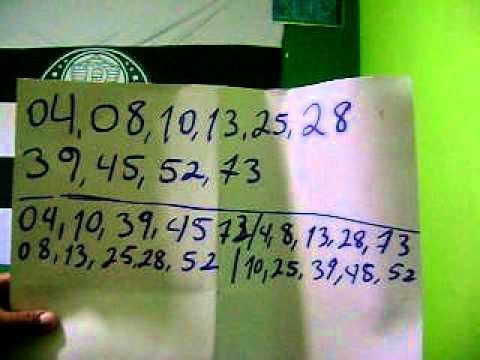 04,08,10,13,25,28
39,45,52,73
04,10,39,45 73/4,8,13,28,73
08,13,25,28,52 |10,25,39,45,52